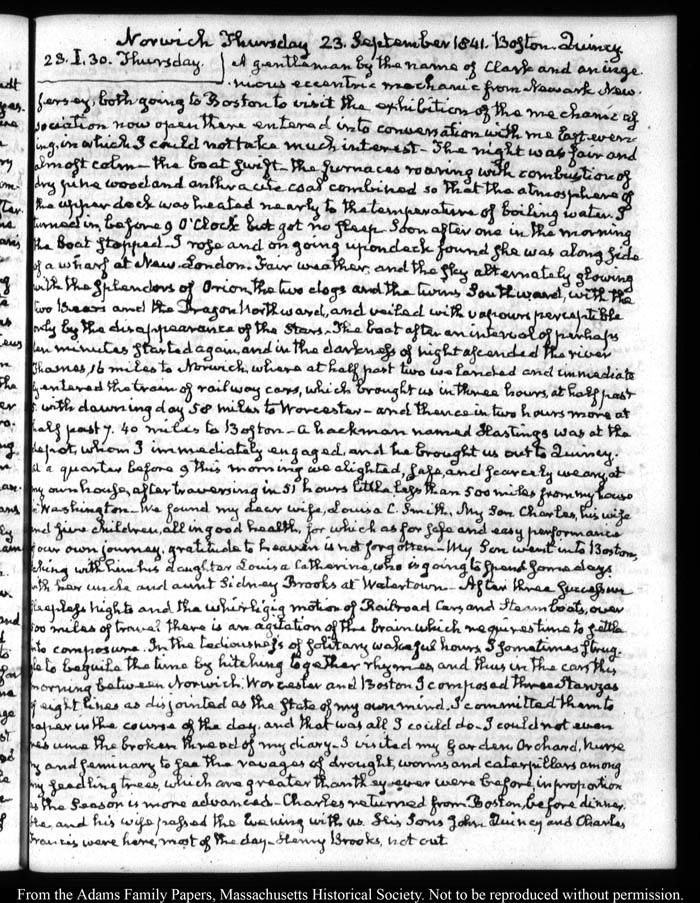 Norwich Thursday 23. September 1841. Boston. Quincy.
23. I. 30. Thursday. A gentleman by the name of Clark and an inge-
nious eccentric mechanic from Newark New-
Jersey, both going to Boston to visit the exhibition of the mechanic as
sociation now open there entered into conversation with me last even-
ing, in which I could not take much interest- The night was fair and
almost calm- the boat swift- the furnaces roaring with combustion of
dry pine wood and anthracite coal combined so that the atmosphere of
the upper deck was heated nearly to the temperature of boiling water. I
turned in before 9 O'Clock but got no sleep. Soon after one in the morning
the boat stopped. I rose and on going upon deck found she was along side
of a wharf at New-London. Fair weather, and the sky alternately glowing
with the splendors of Orion, the two dogs and the twins Southward, with the
two Bears and the Dragon Northward, and veiled with vapours perceptible
only by the disappearance of the Stars. The boat after an interval of perhaps
ten minutes started again, and in the darkness of night ascended the river
Thames, 16 miles to Norwich, where at half past two we landed and immediate
ly entered the train of railway cars, which brought us in three hours, at half past
5 with dawning day 58 miles to Worcester- and thence in two hours more at
half past 7. 40 miles to Boston- A hackman named Hastings was at the
depot, whom I immediately engaged, and he brought us out to Quincy.
At a quarter before 9 this morning we alighted, safe, and scarcely weary, at
my own house, after traversing in 51 hours little less than 500 miles from my house
at Washington- We found my dear wife, Louisa C. Smith, My Son Charles, his wife
and five children, all in good health, for which as for safe and easy performance
of our own journey, gratitude to heaven is not forgotten- My Son went into Boston,
taking with him his daughter Louisa Catherine, who is going to spend some days
with her uncle and aunt Sidney Brooks at Watertown- After three successive
sleepless nights and the whirligig motion of Railroad Cars and Steam boats, over
500 miles of travel there is an agitation of the brain which requires time to settle
into composure. In the tediousness of solitary wakeful hours I sometimes strug-
gle to beguile the time by hitching together rhymes, and thus in the cars this
morning between Norwich, Worcester and Boston I composed three stanzas
of eight lines as disjointed as the state of my own mind. I committed them to
paper in the course of the day, and that was all I could do. I could not even
resume the broken thread of my diary- I visited my Garden, Orchard, Nurse
ry and seminary to see the ravages of drought, worms and caterpillars among
my seedling trees, which are greater than they ever were before, in proportion
as the season is more advanced- Charles returned from Boston, before dinner.
He, and his wife passed the Evening with us. His Sons John Quincy and Charles
Francis were here, most of the day- Henry Brooks, not out
From the Adams Family Papers, Massachusetts Historical Society. Not to be reproduced without permission.